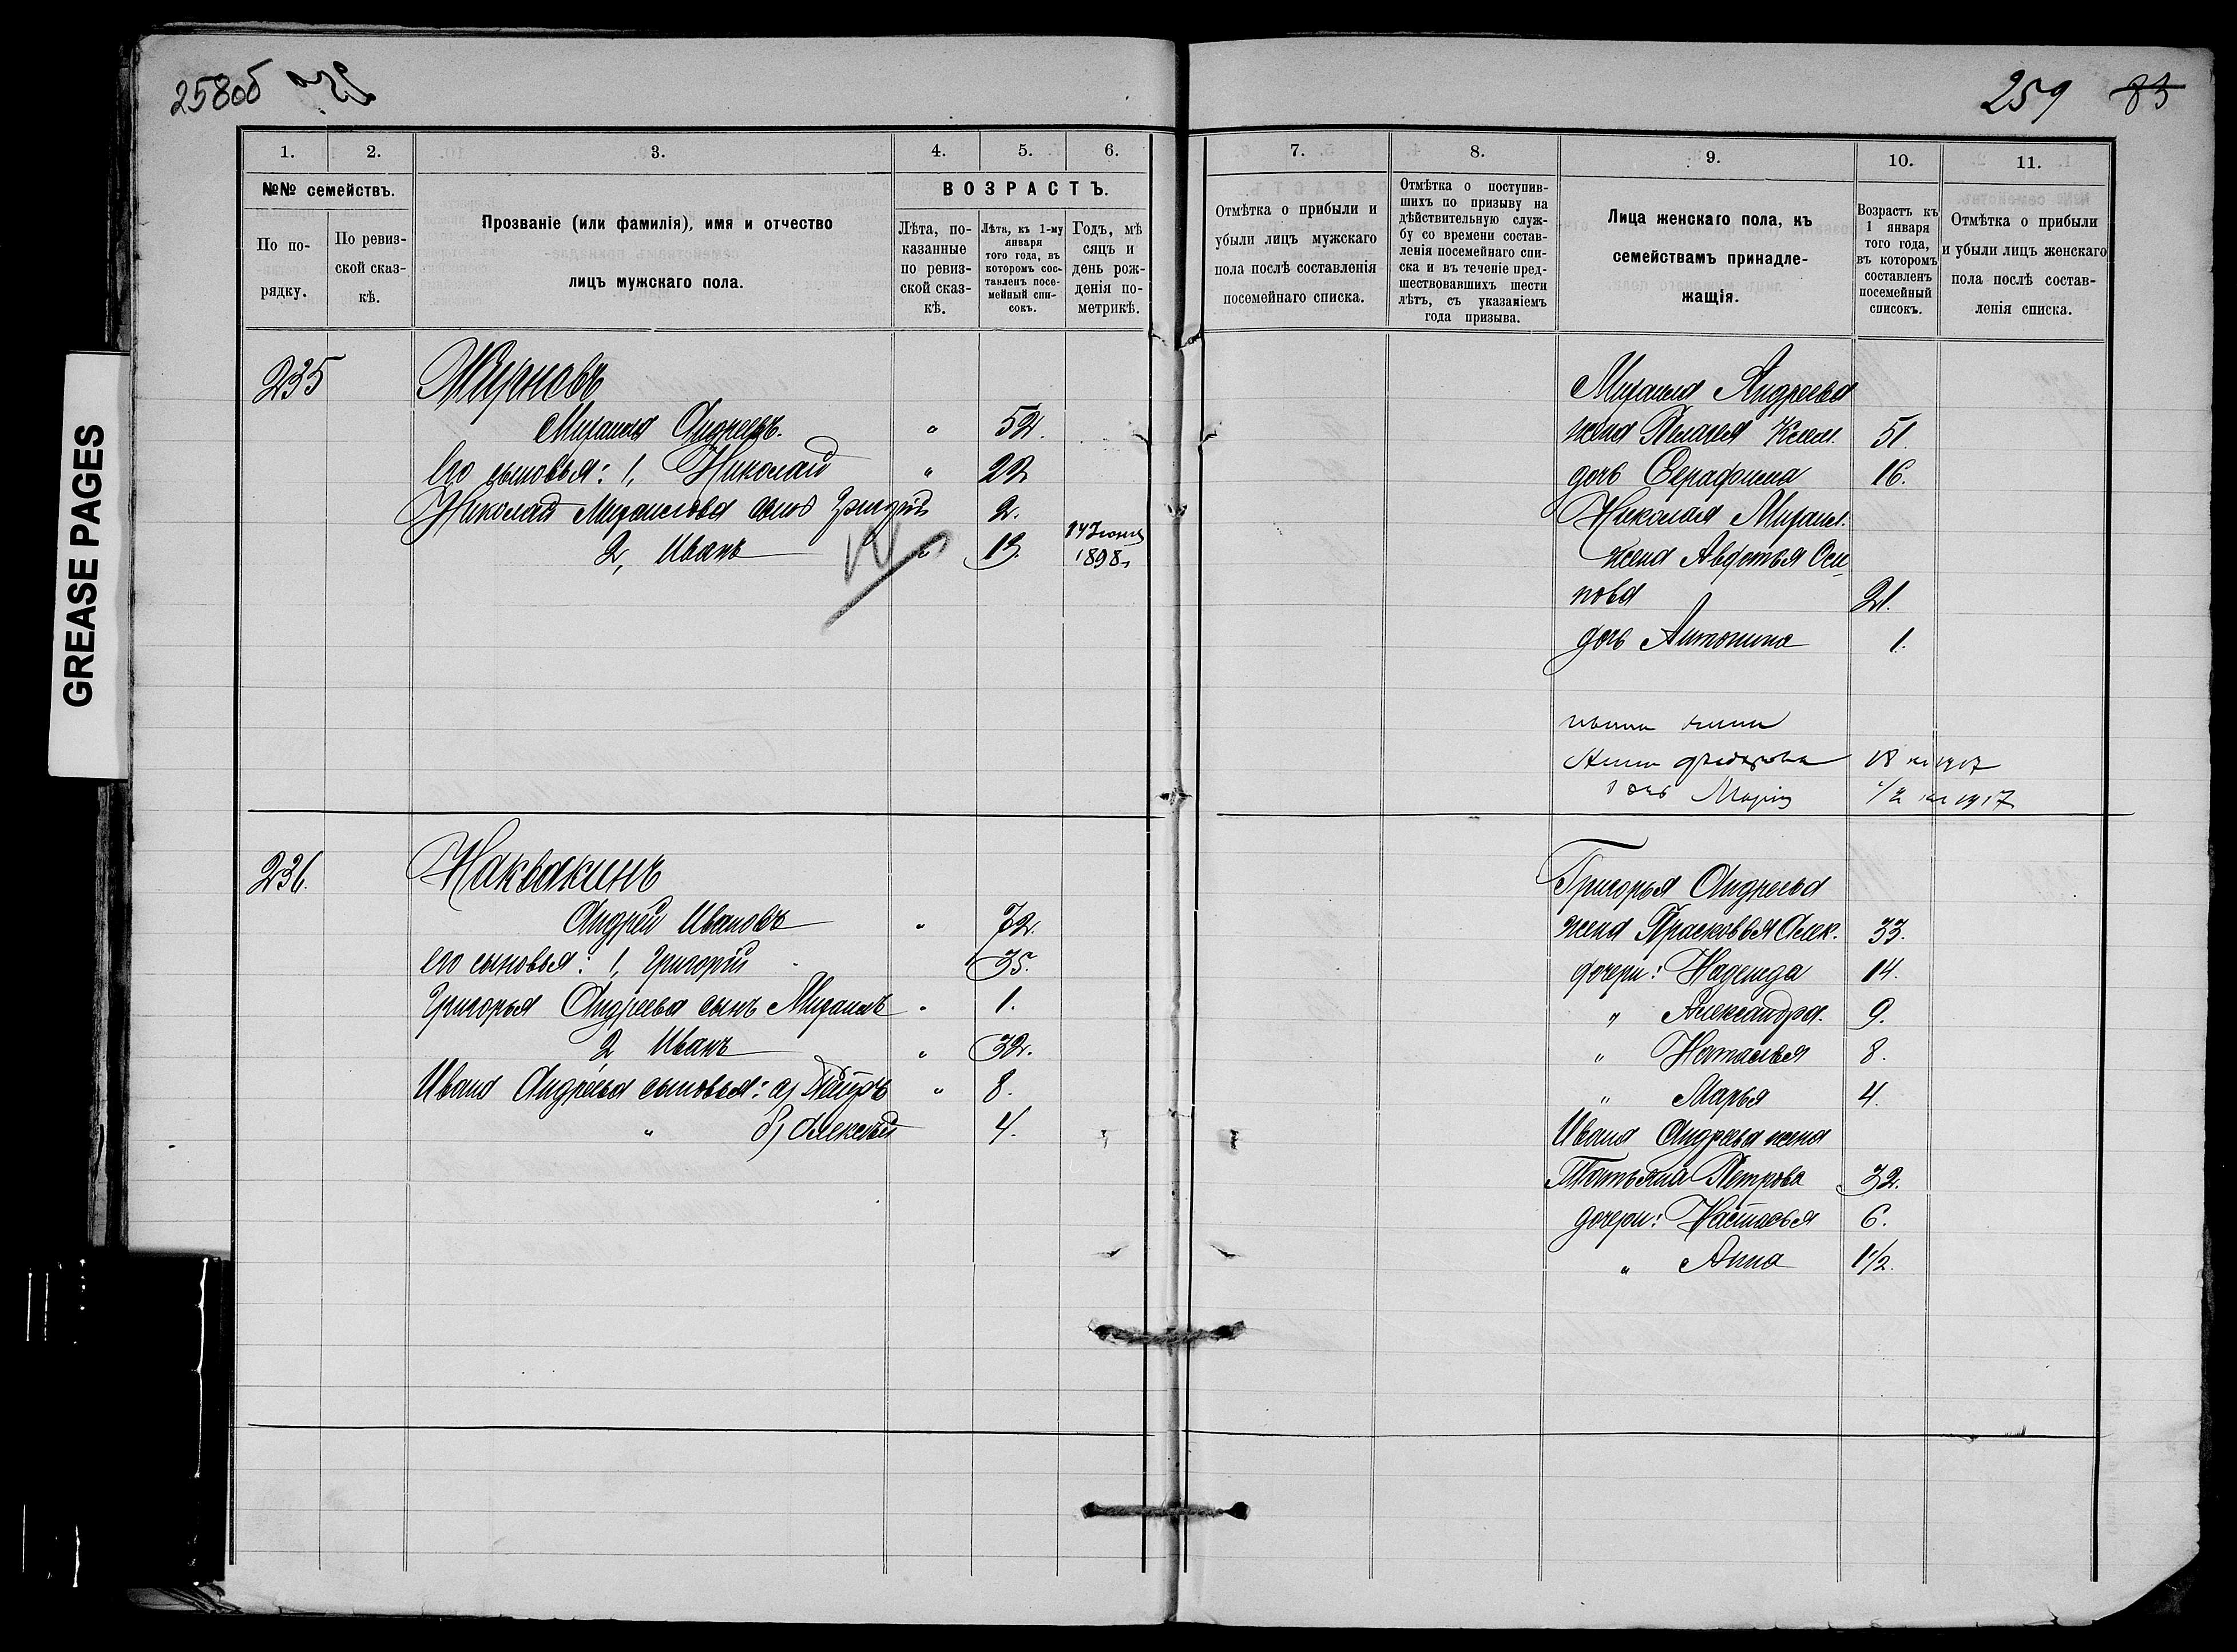 258об
259 83
GREASE PAGES
1. 2. 3. 4. 5. 6.
№№ семействъ.
По по-
рядку.
По ревиз-
ской сказ-
кѣ.
Прозваніе (или фамилія), имя и отчество
лицъ мужскаго пола.
ВОЗРАСТЪ.
Лѣта, по-
казанные
по ревиз-
ской сказ-
кѣ.
Лѣта, къ 1-му
января
того года, въ
которомъ сос-
тавленъ посе-
мейный спи-
сокъ.
Годъ, мѣ
сяцъ и
день рож-
денія по-
метрикѣ.
235
Жирновъ
Михаилъ Андреевъ. " 52.
Его сыновья: 1, Николай " 22
Николая Михаилова сынъ Григорій 2.
2, Иванъ " 13. 14 Іюня
1898.
236.
Наквакинъ
Андрей Ивановъ " 72.
его сыновья: 1, Григорій 35.
Григорья Андреева сынъ Михаилъ " 1.
2, Иванъ " 32.
Ивана Андреева сыновья: а) Петръ " 8.
" б) Алексѣй 4.
7. 8. 9. 10. 11.
Отмѣтка о прибыли и
убыли лицъ мужскаго
пола послѣ составленія
посемейнаго списка.
Отмѣтка о поступив-
шихъ по призыву на
дѣйствительную служ-
бу со времени состав-
ленія посемейнаго спи-
ска и въ теченіе пред-
шествовавшихъ шести
лѣтъ, съ указаніемъ
года призыва.
Лица женскаго пола, къ
семействамъ принадле-
жащія.
Возрастъ къ
1 января
того года,
въ которомъ
составленъ
посемейный
списокъ.
Отмѣтка о прибыли
и убыли лицъ женскаго
пола послѣ состав-
ленія списка.
Михаила Андреева
жена Пелагея Клем. 51.
дочь Серафима 16.
Николая Михаил.
жена Авдотья Оси
пова 21.
дочь Антонина 1.
Ивана жена
Анна Федорова 18 на 1917
дочь Марія 1/2 на 1917
Григорья Андреева
жена Прасковья Алек. 33.
дочери: Надежда 14.
" Александра. 9.
" Наталья 8.
" Марья 4.
Ивана Андреева жена
Татьяна Петрова 32.
дочери: Настасья 6.
" Анна 1 1/2.